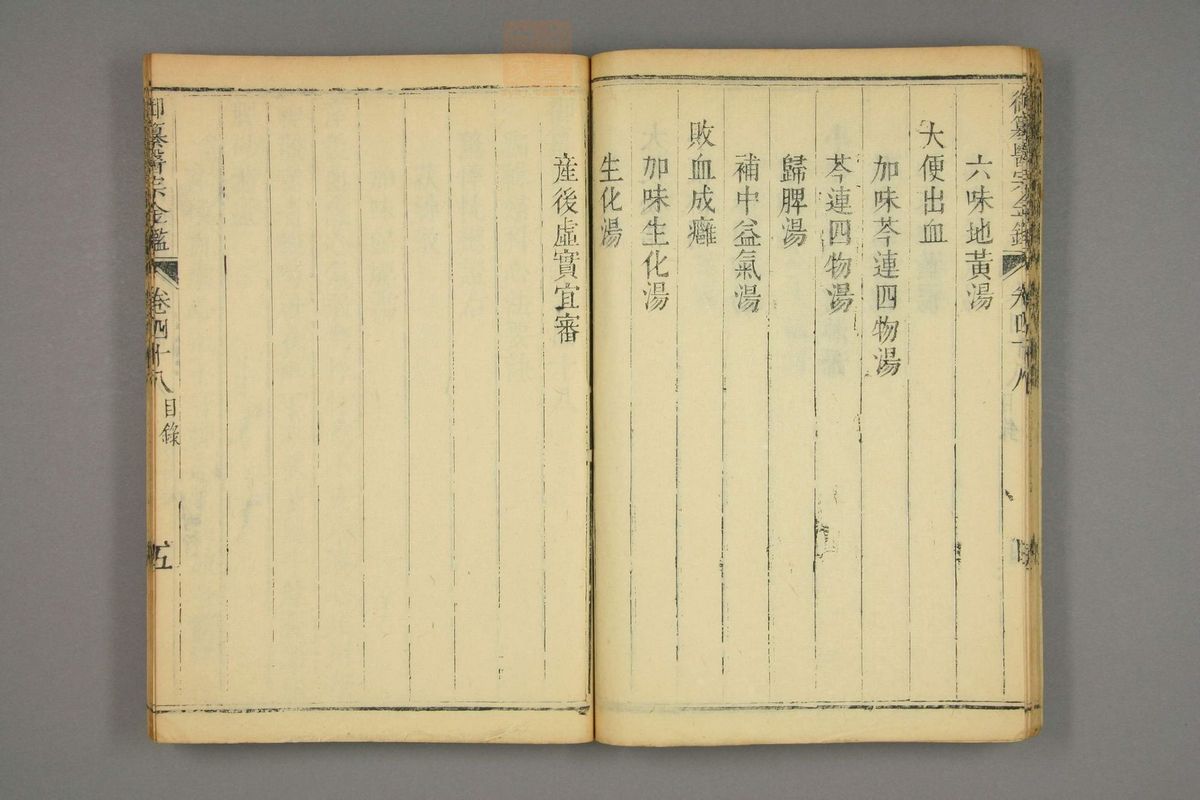 六味地黃湯
大便出血
加味芩連四物湯
芩連四物湯
歸脾湯
補中益氣湯
敗血成癰
加味生化湯
生化湯
產後虛實宜審
御纂醫宗金鑑
卷四十八
目錄
五